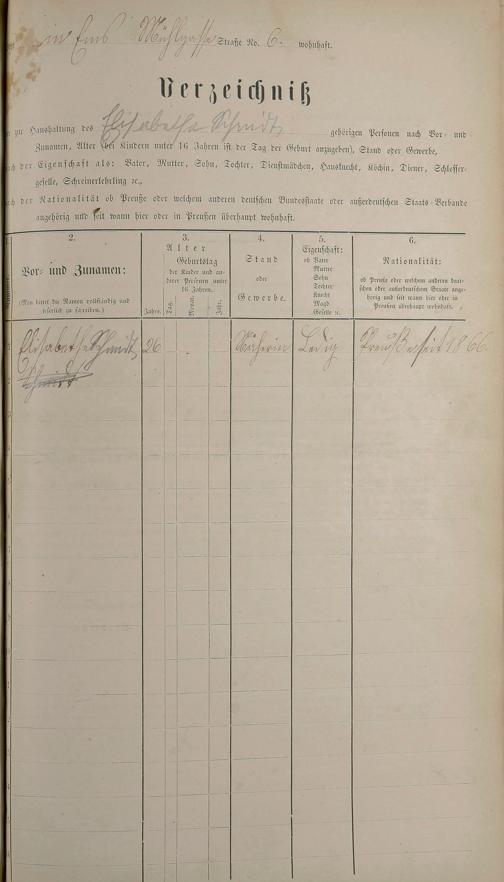 in Ems Mühlgasse Straße No. 6. wohnhaft.
Verzeichniß
zur Haushaltung des Elisabetha Schmidt gehörigen Personen nach Vor- und
Zunamen, Alter (bei Kindern unter 16 Jahren ist der Tag der Geburt anzugeben), Stand oder Gewerbe,
der Eigenschaft als: Vater, Mutter, Sohn, Tochter, Dienstmädchen, Hausknecht, Köchin, Diener, Schlosser-
geselle, Schreinerlehrling ꝛc.,
der Nationalität ob Preuße oder welchem anderen deutschen Bundesstaate oder außerdeutschen Staats-Verbande
angehörig und seit wann hier oder in Preußen überhaupt wohnhaft.
2.
Vor- und Zunamen:
(Man bittet die Namen vollständig und
leserlich zu schreiben.)
3.
Alter
Geburtstag
der Kinder und an-
derer Personen unter
16 Jahren.
Jahre. Tag. Monat. Jahr.
4.
Stand
oder
Gewerbe.
5.
Eigenschaft:
ob Vater
Mutter
Sohn
Tochter
Knecht
Magd
Geselle ꝛc.
6.
Nationalität:
ob Preuße oder welchem anderen deut-
schen oder außerdeutschen Staate ange-
hörig und seit wann hier oder in
Preußen überhaupt wohnhaft.
Elisabetha Schmidt 26 Näherin Ledig Preuße seit 1866
Schmidt